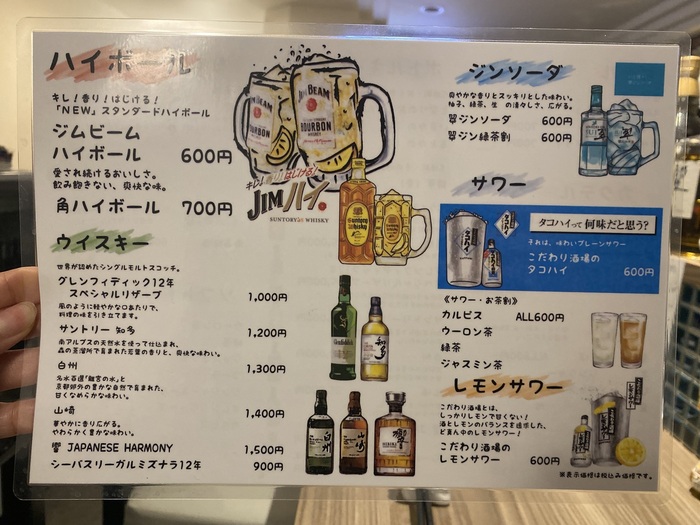 ハイボール
キレ!香り!はじける!
「NEW」スタンダードハイボール
ジムビーム
ハイボール 600円
愛され続けるおいしさ。
飲み飽きない、爽快な味。
角ハイボール 700円
JIM BEAM
BOURBON
WHISKEY
JIM BEAM
BOURBON
WHISKEY
キレ!香り!はじける!
JIMハイ。
SUNTORY WHISKY
ウイスキー
世界が認めたシングルモルトスコッチ。
グレンフィディック12年
スペシャルリザーブ 1,000円
風のように軽やかな口あたりで、
料理の味を引き立てます。
サントリー 知多 1,200円
南アルプスの天然水を使って仕込まれ、
森の蒸溜所で育まれた若葉の香りと、爽快な味わい。
白州 1,300円
名水百選「離宮の水」と
京都郊外の豊かな自然で育まれた、
甘くなめらかな味わい。
山崎 1,400円
華やかに香り広がる。
やわらかく豊かな味わい。
響 JAPANESE HARMONY 1,500円
シーバスリーガルミズナラ12年 900円
Glenfiddich
知多
白州
山崎
響
ジンソーダ
爽やかな香りとスッキリとした味わい。
柚子、緑茶、生姜の清々しさ、広がる。
翠ジンソーダ 600円
翠ジン緑茶割 600円
翠
サワー
タコハイ
タコハイって何味だと思う?
それは、味わいプレーンサワー
こだわり酒場の
タコハイ 600円
《サワー・お茶割》
カルピス ALL600円
ウーロン茶
緑茶
ジャスミン茶
レモンサワー
こだわり酒場とは、
しっかりレモンで甘くない!
酒とレモンのバランスを追求した、
ど真ん中のレモンサワー!
こだわり酒場の
レモンサワー 600円
※表示価格は税込み価格です。